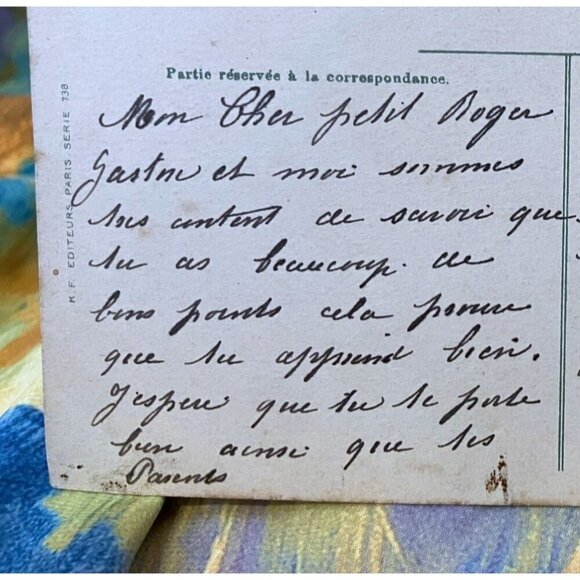 Partie réservée à la correspondance.
Mon Cher petit Roger
Gaston et moi sommes
tres content de savoir que
tu as beaucoup de
bons points cela prouve
que tu apprend bien.
J'espere que tu te porte
bien ainsi que tes
Parents
K.F. EDITEURS PARIS SERIE 738